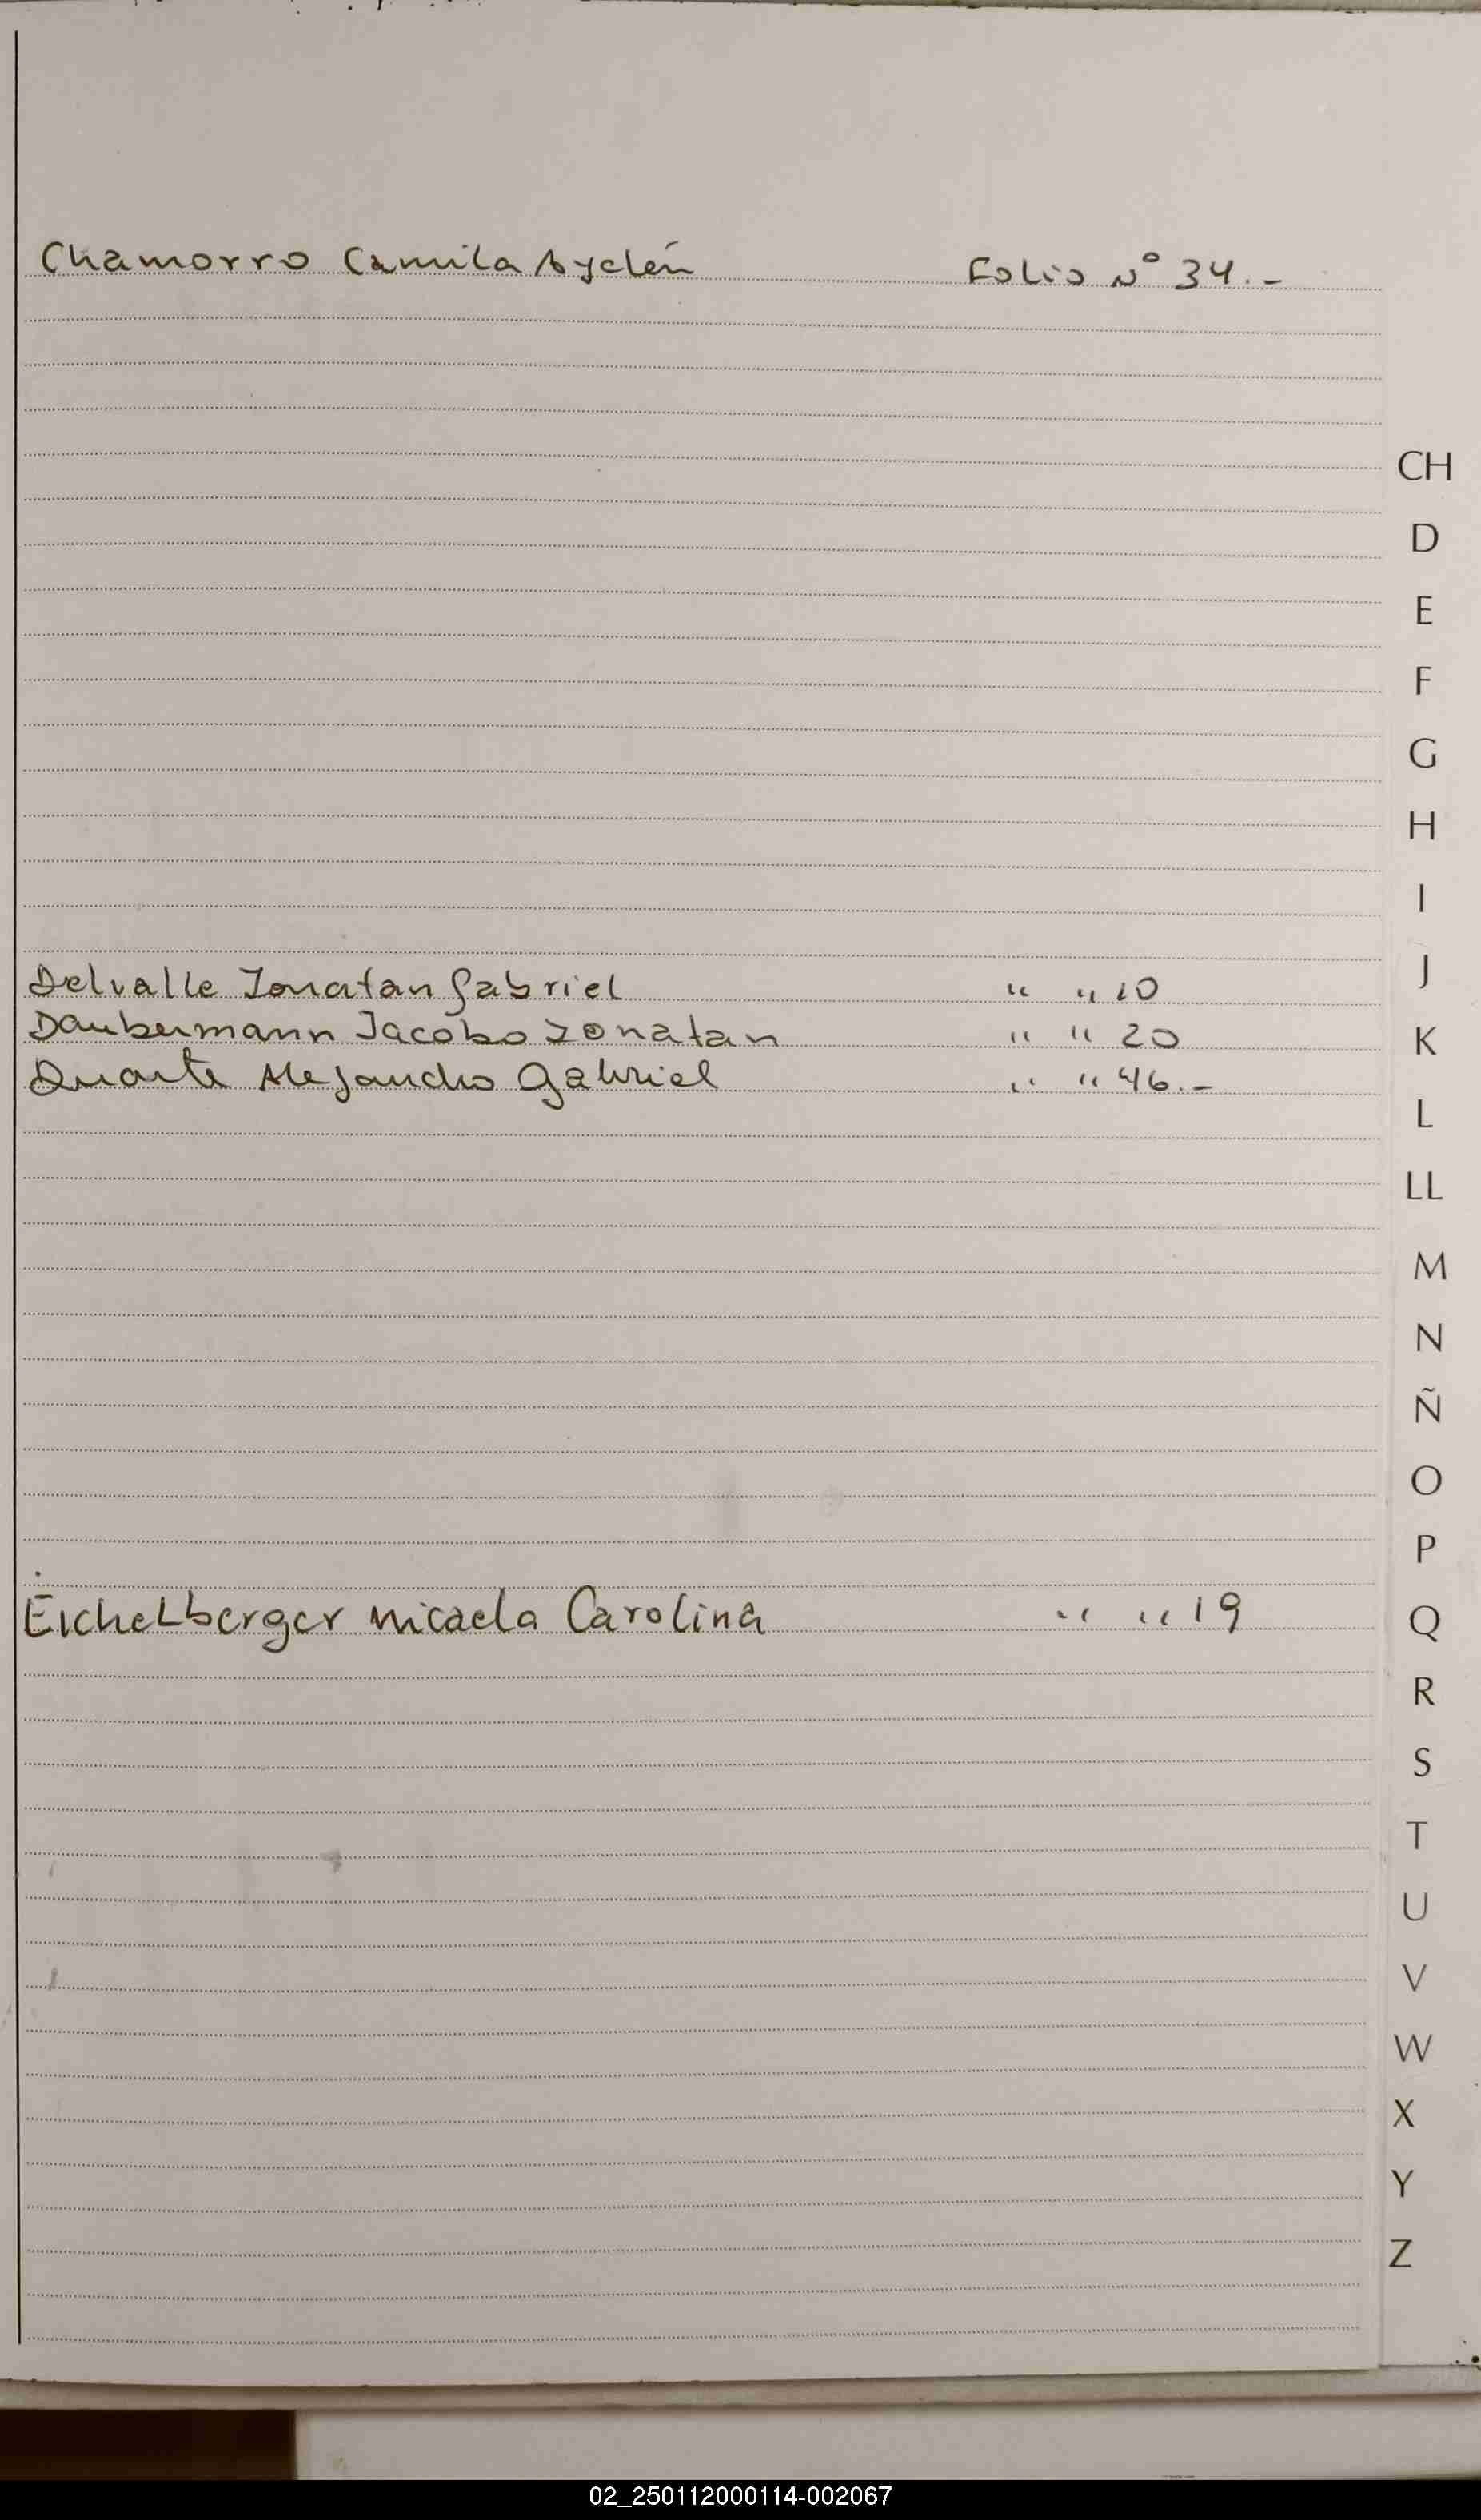 Chamorro Camila Ayelén Folio N° 34.-
CH
D
E
F
G
H
I
Delvalle Jonatan Gabriel " " 10
J
Daubermann Jacobo Jonatan " " 20
K
Duarte Alejandro Gabriel " " 46.-
L
LL
M
N
Ñ
O
P
Eichelberger Micaela Carolina " " 19
Q
R
S
T
U
V
W
X
Y
Z
02_250112000114-002067